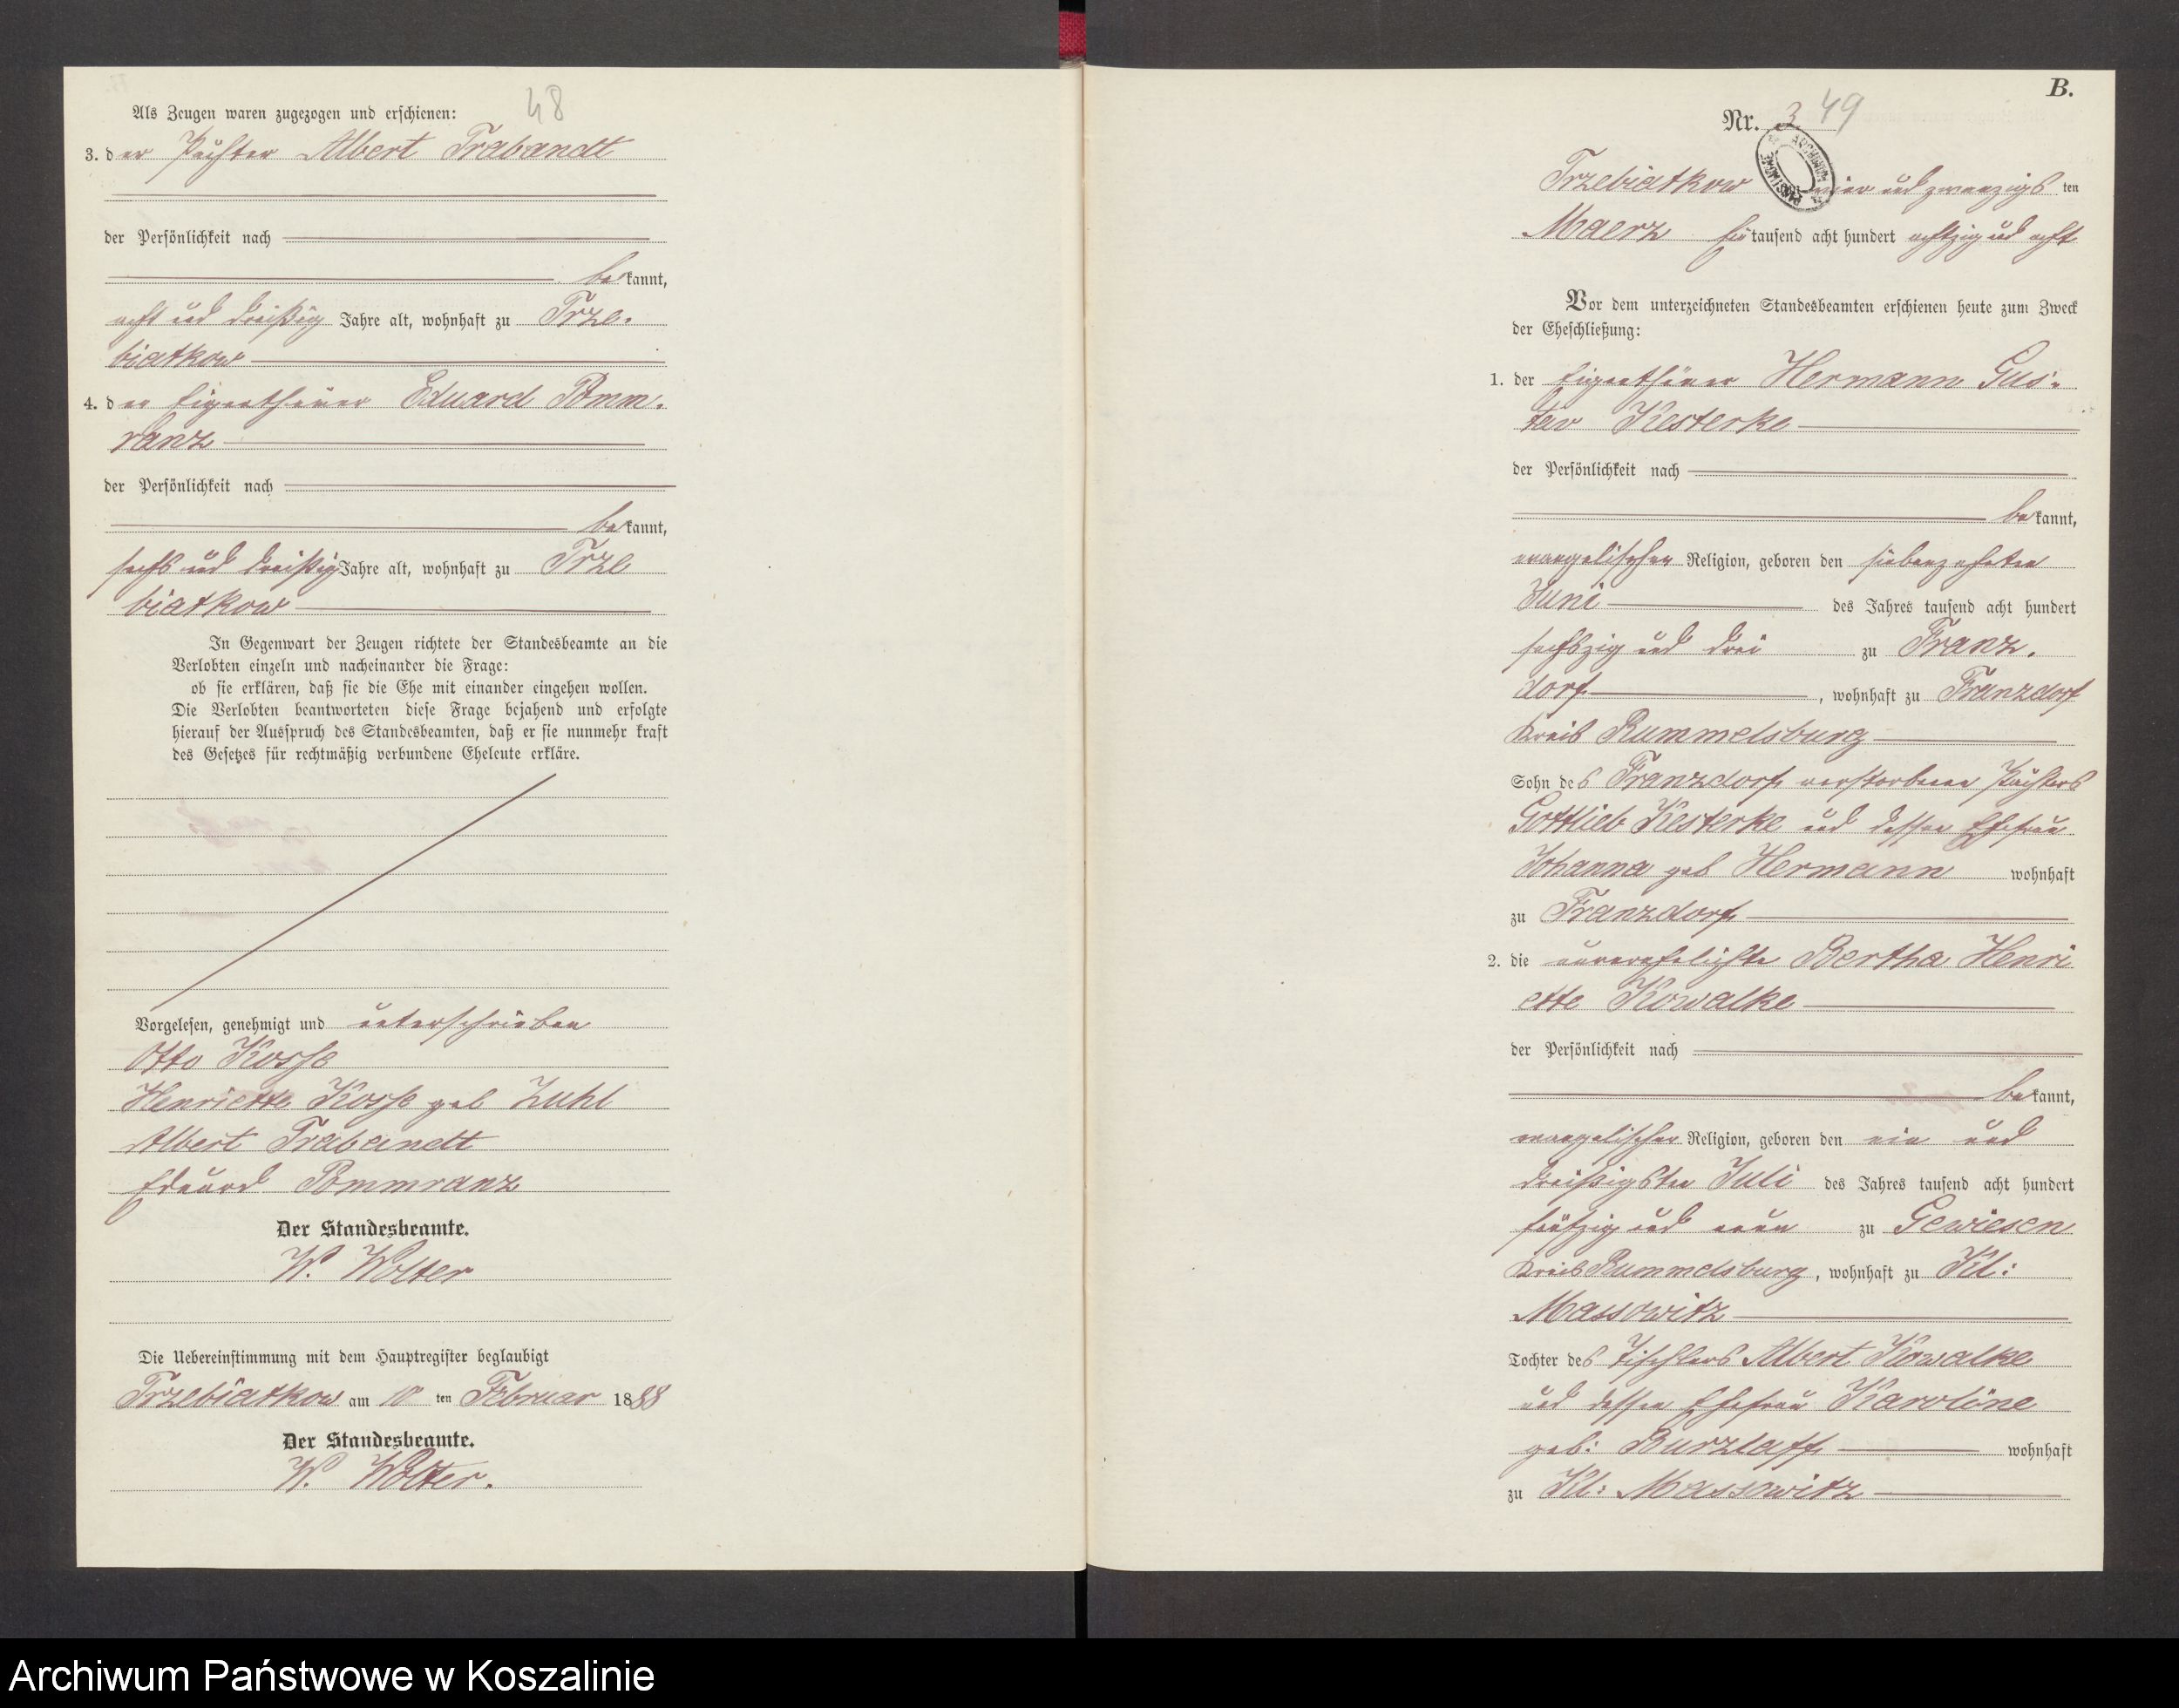 48
Als Zeugen waren zugezogen und erschienen:
3. der Pächter Albert Trabandt
der Persönlichkeit nach
bekannt,
acht und dreißig Jahre alt, wohnhaft zu Trze-
biatkow
4. der Eigenthümer Eduard Pomm-
ranz
der Persönlichkeit nach
bekannt,
sechs und dreißig Jahre alt, wohnhaft zu Trze
biatkow
In Gegenwart der Zeugen richtete der Standesbeamte an die
Verlobten einzeln und nacheinander die Frage:
ob sie erklären, daß sie die Ehe mit einander eingehen wollen.
Die Verlobten beantworteten diese Frage bejahend und erfolgte
hierauf der Ausspruch des Standesbeamten, daß er sie nunmehr kraft
des Gesetzes für rechtmäßig verbundene Eheleute erkläre.
Vorgelesen, genehmigt und unterschrieben
Otto Kosse
Henriette Kosse geb Zuhl
Albert Trabandt
Eduard Pommranz
Der Standesbeamte.
W. Wolter
Die Uebereinstimmung mit dem Hauptregister beglaubigt
Trzebiatkow am 10 ten Februar 1888
Der Standesbeamte.
W. Wolter.
B.
Nr. 3 49
Trzebiatkow vier und zwanzigsten
Maerz Eintausend acht hundert achtzig und acht
Vor dem unterzeichneten Standesbeamten erschienen heute zum Zweck
der Eheschließung:
1. der Eigenthümer Hermann Gus-
tav Kesterke
der Persönlichkeit nach
bekannt,
evangelischer Religion, geboren den siebenzehnten
Juni des Jahres tausend acht hundert
sechszig und drei zu Franz-
dorf, wohnhaft zu Franzdorf
Kreis Rummelsburg
Sohn des Franzdorf verstorbenen Pächters
Gottlieb Kesterke und dessen Ehefrau
Johanna geb Hermann wohnhaft
zu Franzdorf
2. die unverehelichte Bertha Henri
ette Kowalke
der Persönlichkeit nach
bekannt,
evangelischer Religion, geboren den ein und
dreißigsten Juli des Jahres tausend acht hundert
fünfzig und neun zu Gewiesen
Kreis Rummelsburg, wohnhaft zu Kl:
Massowitz
Tochter des Tischlers Albert Kowalke
und dessen Ehefrau Karoline
geb: Burzlaff wohnhaft
zu Kl: Massowitz
Archiwum Państwowe w Koszalinie